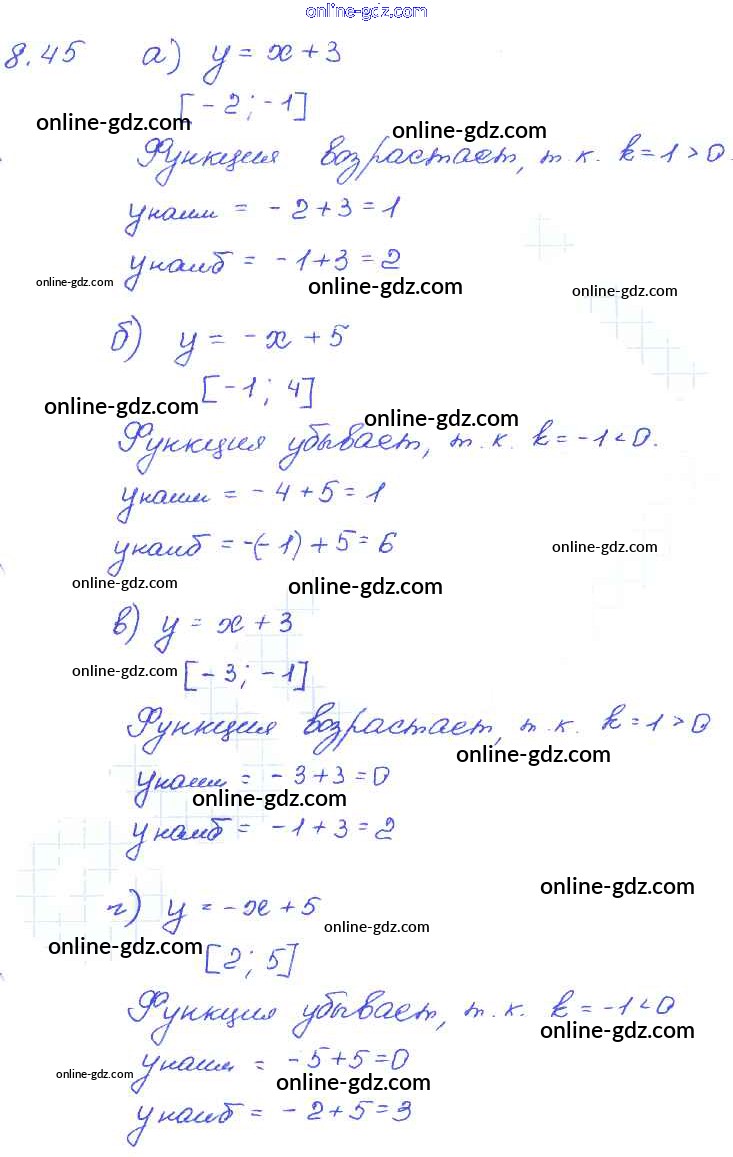 online-gdz.com
8.45 а) y = x + 3
[-2; -1]
online-gdz.com
online-gdz.com
Функция возрастает, т.к. k = 1 > 0.
yнаим = -2 + 3 = 1
yнаиб = -1 + 3 = 2
online-gdz.com
online-gdz.com
online-gdz.com
б) y = -x + 5
[-1; 4]
online-gdz.com
online-gdz.com
Функция убывает, т.к. k = -1 < 0.
yнаим = -4 + 5 = 1
yнаиб = -(-1) + 5 = 6
online-gdz.com
online-gdz.com
online-gdz.com
в) y = x + 3
online-gdz.com
[-3; -1]
Функция возрастает, т.к. k = 1 > 0
online-gdz.com
yнаим = -3 + 3 = 0
online-gdz.com
yнаиб = -1 + 3 = 2
online-gdz.com
г) y = -x + 5
online-gdz.com
online-gdz.com
[2; 5]
Функция убывает, т.к. k = -1 < 0
online-gdz.com
yнаим = -5 + 5 = 0
online-gdz.com
online-gdz.com
yнаиб = -2 + 5 = 3